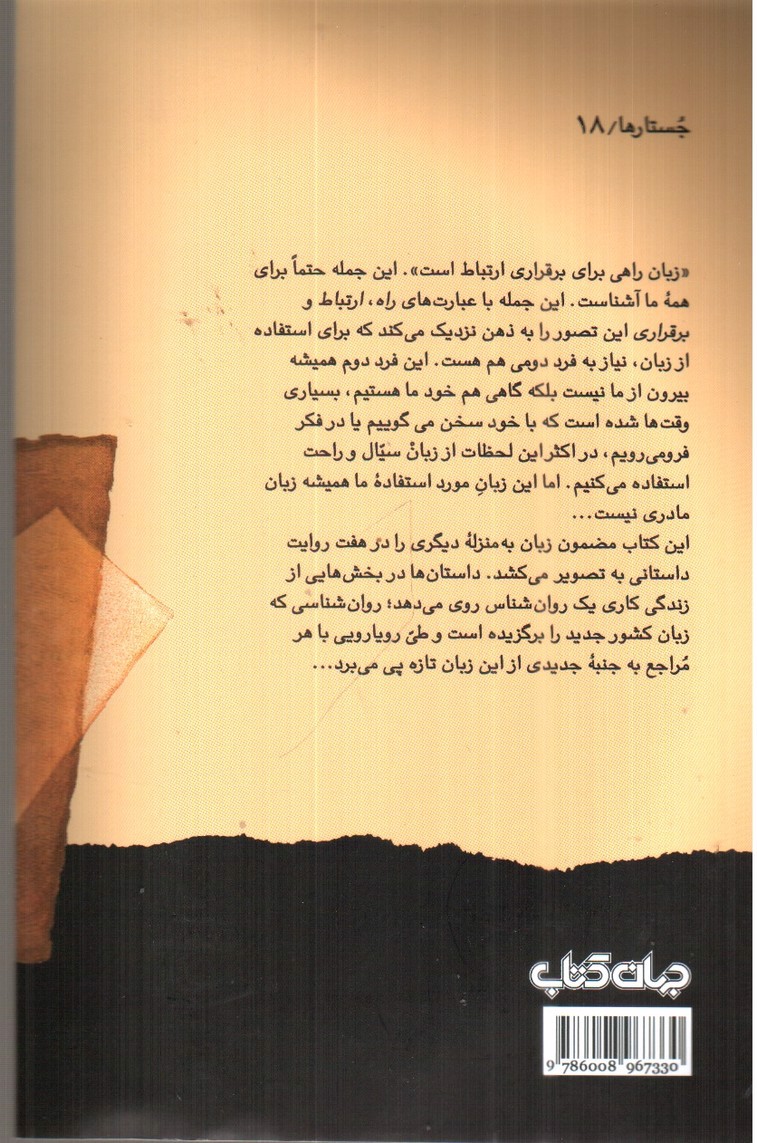 جُستارها/۱۸
«زبان راهی برای برقراری ارتباط است». این جمله حتماً برای
همهٔ ما آشناست. این جمله با عبارت‌های راه، ارتباط و
برقراری این تصور را به ذهن نزدیک می‌کند که برای استفاده
از زبان، نیاز به فرد دومی هم هست. این فرد دوم همیشه
بیرون از ما نیست بلکه گاهی هم خود ما هستیم، بسیاری
وقت‌ها شده است که با خود سخن می گوییم یا در فکر
فرومی‌رویم، در اکثر این لحظات از زبانْ سیّال و راحت
استفاده می‌کنیم. اما این زبانِ مورد استفادهٔ ما همیشه زبان
مادری نیست...
این کتاب مضمون زبان به‌منزلهٔ دیگری را در هفت روایت
داستانی به تصویر می‌کشد. داستان‌ها در بخش‌هایی از
زندگی کاری یک روان‌شناس روی می‌دهد؛ روان‌شناسی که
زبان کشور جدید را برگزیده است و طیّ رویارویی با هر
مُراجع به جنبهٔ جدیدی از این زبان تازه پی می‌برد...
جهان کتاب
9 786008 967330